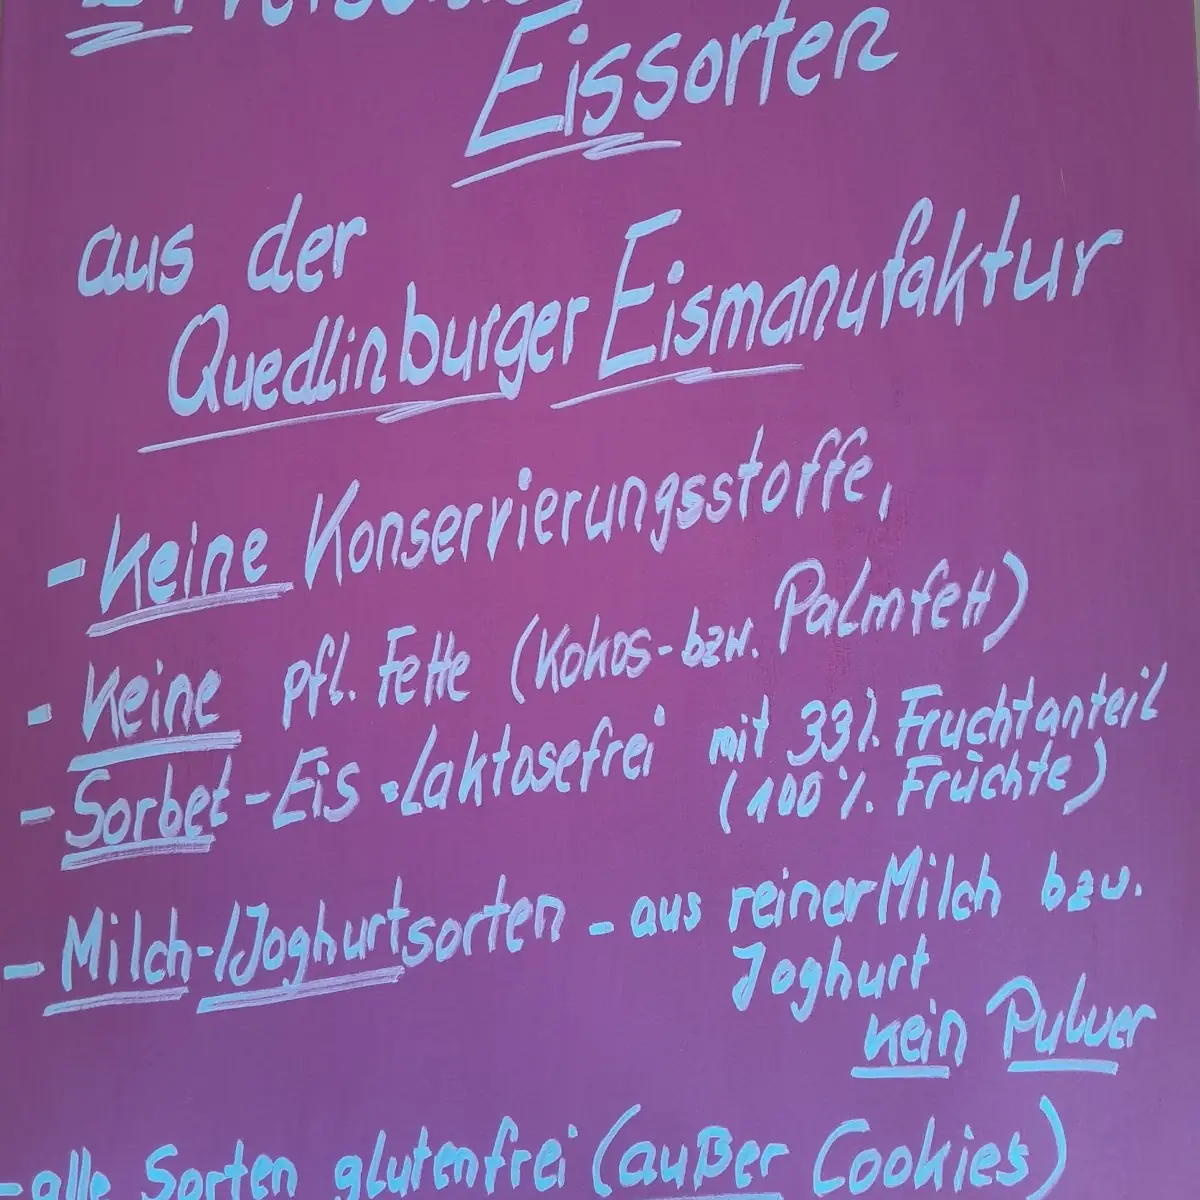 Eissorten
aus der
Quedlinburger Eismanufaktur
- Keine Konservierungsstoffe,
- Keine pfl. Fette (Kokos- bzw. Palmfett)
- Sorbet-Eis = Laktosefrei mit 33% Fruchtanteil
(100% Früchte)
- Milch-/Joghurtsorten - aus reiner Milch bzw.
Joghurt
kein Pulver
- alle Sorten glutenfrei (außer Cookies)